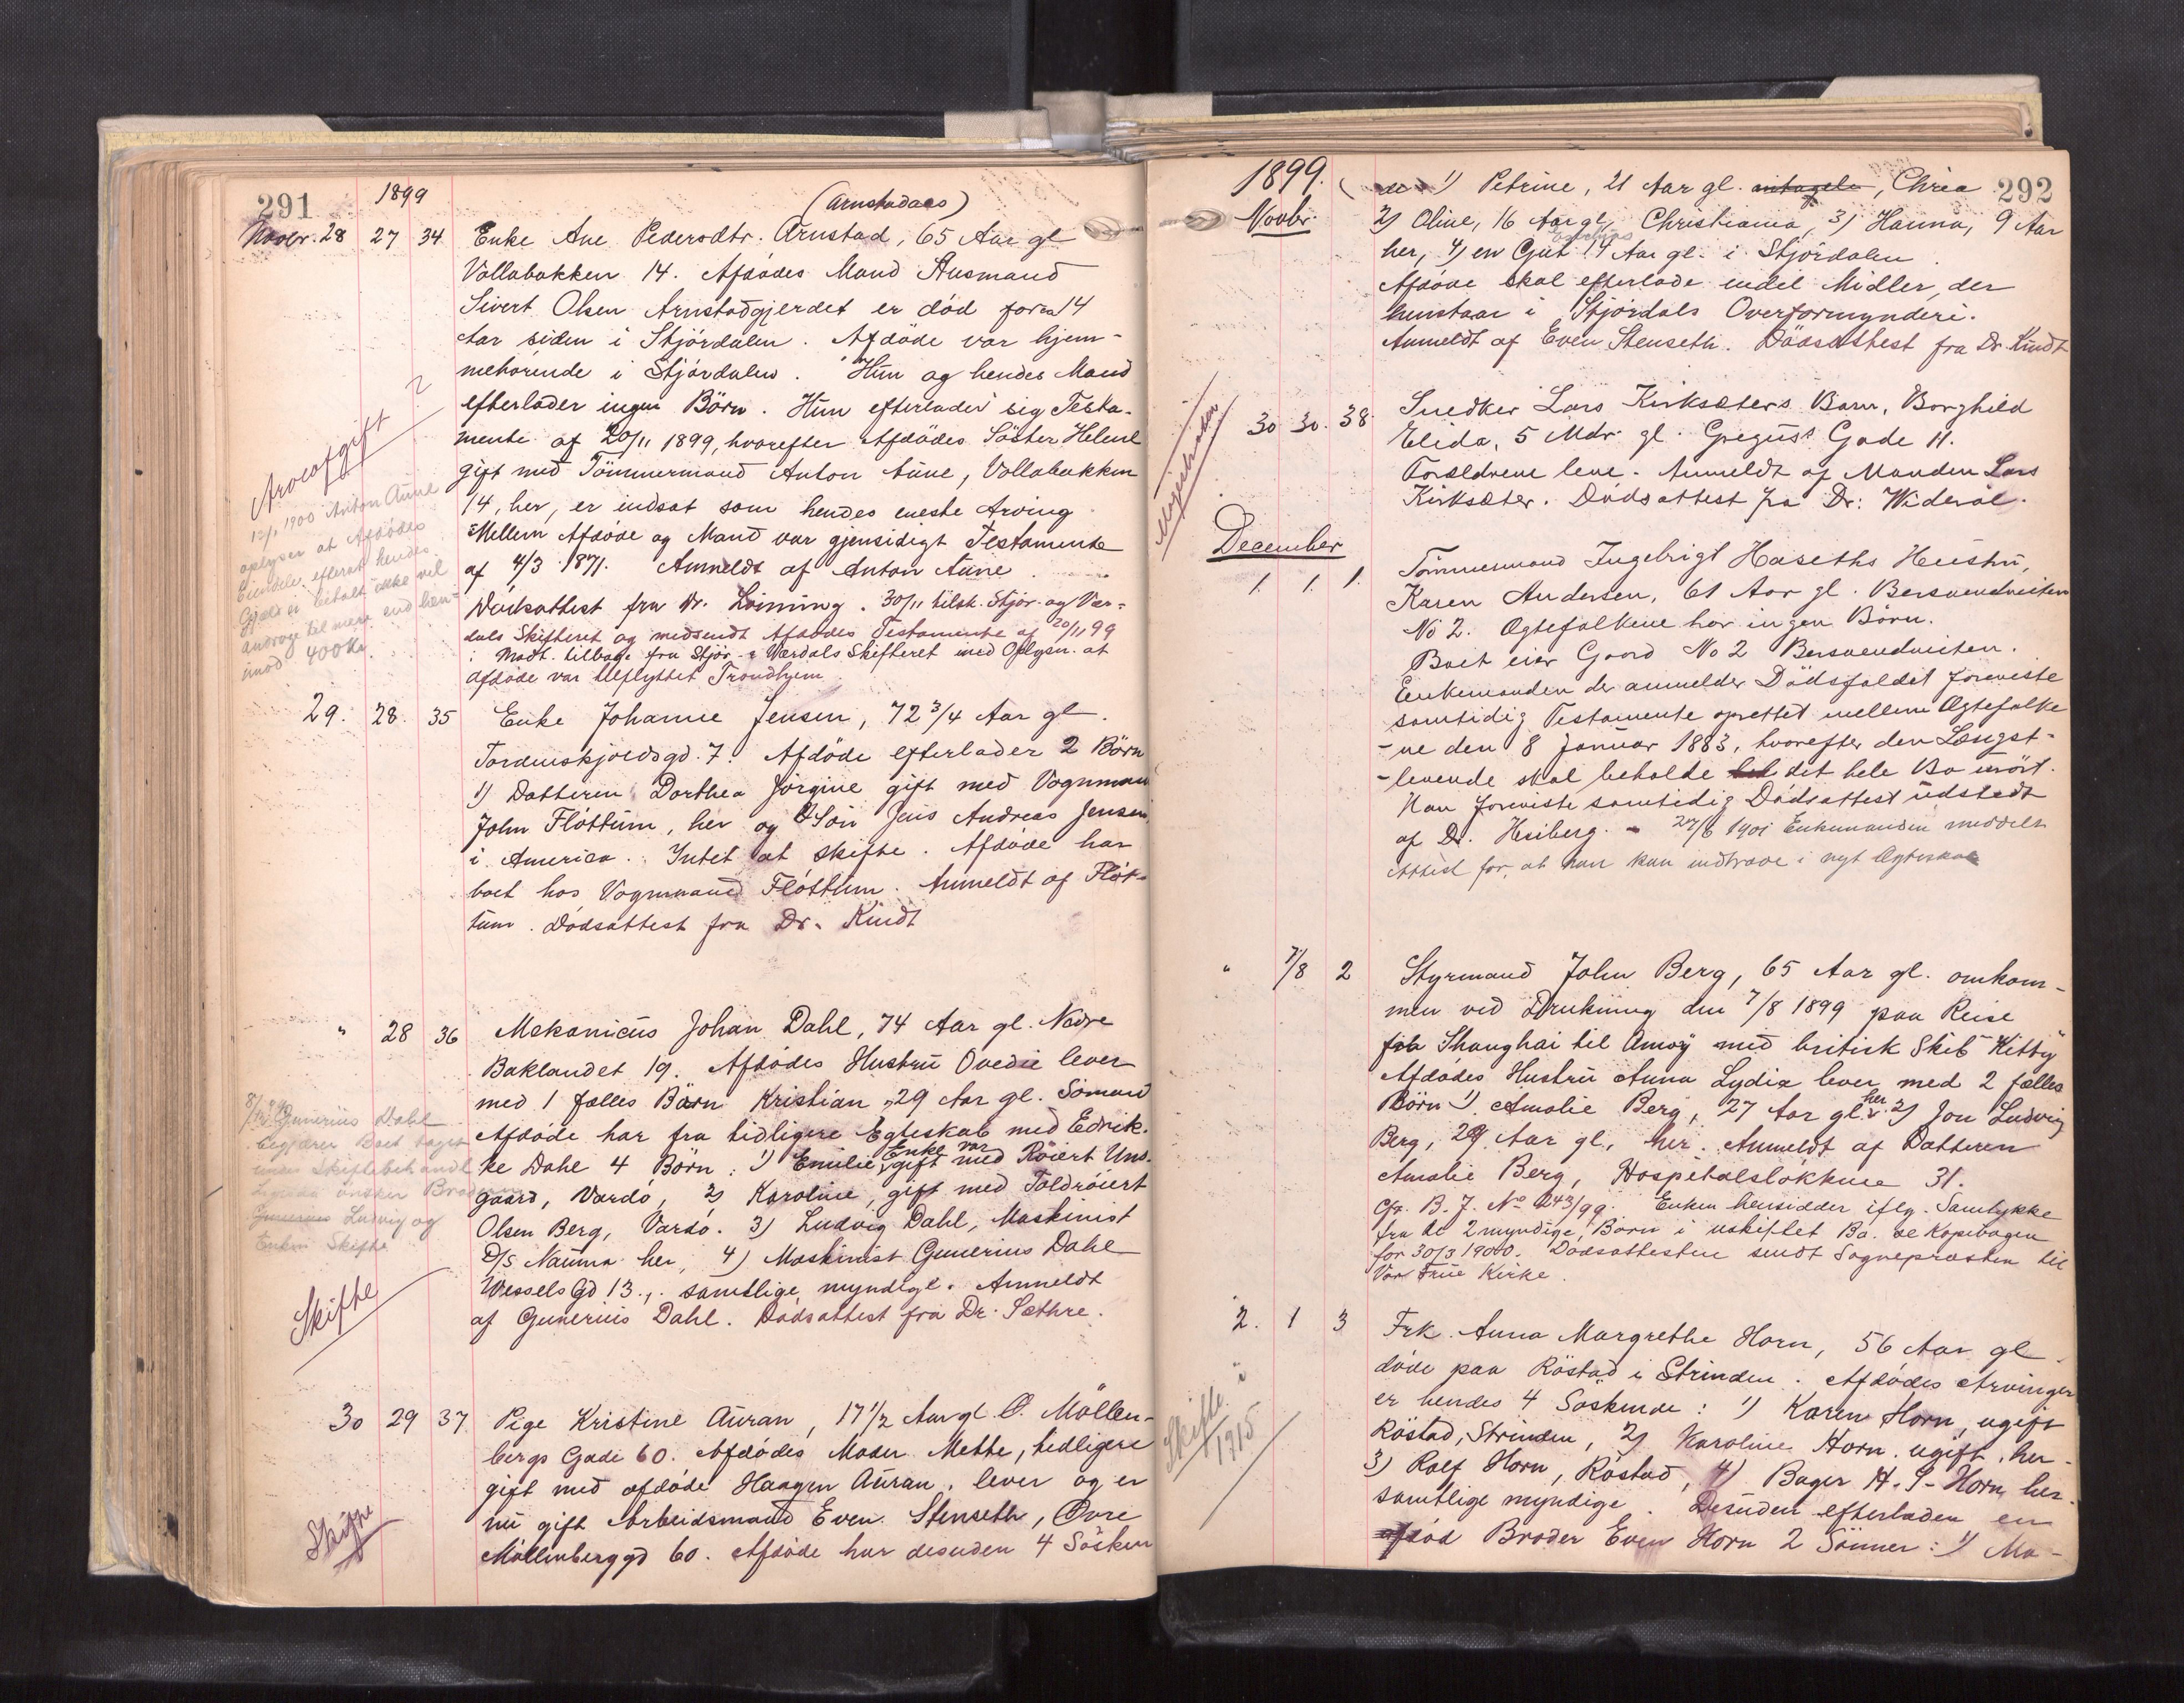 291
1899
(Arnstadaas)
Novbr. 28 27 34 Enke Ane Pedersdtr. Arnstad, 65 Aar gl
Vollabakken 14. Afdødes Mand Husmand
Sivert Olsen Arnstadgjerdet er död for ca 14
Aar siden i Stjördalen. Afdöde var hjem-
mehörende i Stjördalen. Hun og hendes Mand
efterlader ingen Börn. Hun efterlader sig Testa-
mente af 20/11 1899, hvorefter Afdödes Söster Helene
gift med Tömmermand Anton Aune, Vollabakken
14, her, er indsat som hendes eneste Arving.
Mellem Afdöde og Mand var gjensidigt Testamente
af 4/3 1871. Anmeldt af Anton Aune.
Dödsattest fra Dr. Lorning. 30/11 tilsk. Stjör- og Vær-
dals Skifteret og medsendt Afdödes Testamente af 20/11 99
Modt. tilbage fra Stjör- & Værdals Skifteret med Oplysn. at
afdöde var tilflyttet Trondhjem
Arveafgift ?
12/1 1900 Anton Aune
oplyser at Afdödes
Eiendele efterat hendes
Gjæld er betalt ikke vil
androge til mere end hen-
imod 400 Kr.
29. 28. 35 Enke Johanne Jensen, 72 3/4 Aar gl.
Tordenskjoldsgd. 7. Afdöde efterlader 2 Börn
1) Datteren Dorthea Jörgine gift med Vognmand
John Flöttum, her og Sön Jens Andreas Jensen
i America. Intet at skifte. Afdöde har
boet hos Vognmand Flöttum. Anmeldt af Flöt-
tum. Dödsattest fra Dr. Kindt
" 28 36 Mekanicus Johan Dahl, 74 Aar gl. Nedre
Baklandet 19. Afdödes Hustru Ovedie lever
med 1 fælles Barn Kristian 29 Aar gl. Sömand
Afdöde har fra tidligere Egteskab med Edrik-
ke Dahl 4 Börn: 1) Emilie, Enke var gift med Röiert Uns-
gaard, Vardö, 2) Karoline, gift med Toldröiert
Olsen Berg, Vardö. 3) Ludvig Dahl, Maskinist
D/S Nauma her, 4) Maskinist Gunerius Dahl
Wessels Gd 13., samtlige myndige. Anmeldt
af Gunerius Dahl. Dödsattest fra Dr. Sæthre.
Gunerius Dahl
begjærer Boet taget
under Skiftebehandl
Ludvig og
Enken Skifte
Skifte
30 29 37 Pige Kristine Auran, 17 1/2 Aar gl. Ö. Möllen-
bergs Gade 60. Afdödes Moder Mette, tidligere
gift med afdöde Haagen Auran, lever og er
nu gift Arbeidsmand Even Stenseth, Övre
Möllenberggd 60. Afdöde har desuden 4 Sösken
Skifte
292
1899.
Novbr.
de 1) Petrine, 21 Aar gl., Chrea
2) Oline, 16 Aar gl, Christiania, 3) Hanna, 9 Aar
her, 4) en Gut 14 Aar gl. i Stjördalen.
Afdöde skal efterlade endel Midler, der
henstaar i Stjördals Overformynderi.
Anmeldt af Even Stenseth. Dödsattest fra Dr. Kindt
Magistraten
30 30. 38. Snedker Lars Kirksæters Barn, Borghild
Elida, 5 Mdr. gl. Gregus's Gade 11.
Forældrene leve. Anmeldt af Manden Lars
Kirksæter. Dödsattest fra Dr: Wideröe.
December
1. 1. 1. Tömmermand Ingebrigt Haseths Hustru,
Karen Andersen, 61 Aar gl. Bersvendveiten
No 2. Ægtefolkene har ingen Börn.
Boet eier Gaard No 2 Bersvendveiten.
Enkemanden der anmelder Dödsfaldet foreviste
samtidig Testamente oprettet mellem Ægtefolke
-ne den 8 Januar 1883, hvorefter den Længst-
-levende skal beholde det hele Bo urört.
Han foreviste samtidig Dödsattest udstedt
af Dr. Heiberg. - 27/6 1901 Enkemanden meddelt
Attest for, at han kan indtræde i nyt Ægteskab
" 7/8 2 Styrmand John Berg, 65 Aar gl. omkom-
men ved Drukning den 7/8 1899 paa Reise
fra Shanghai til Amoy med britisk Skib "Kitty"
Afdödes Hustru Anna Lydia lever med 2 fælles
Börn 1). Amalie Berg, 27 Aar gl. her. 2) Jon Ludvig
Berg, 29 Aar gl., her. Anmeldt af Datteren
Amalie Berg, Hospitalslökkene 31.
Cfr. B. J. No 243/99. Enken hensidder iflg. Samtykke
fra de 2 myndige Börn i uskiftet Bo. se Kopibogen
for 30/3 1900. Dödsattesten sendt Sognepræsten til
Vor Frue Kirke.
2. 1 3 Frk. Anna Margrethe Horn, 56 Aar gl.
döde paa Röstad i Strinden. Afdödes Arvinger
er hendes 4 Söskende: 1) Karen Horn, ugift
Röstad, Strinden, 2) Karoline Horn, ugift, her.
3) Rolf Horn, Röstad, 4) Bager H. P. Horn her.
samtlige myndige. Desuden efterladen en
afdöd Broder Even Horn 2 Sönner: 1) Ma-
Skifte i
1915